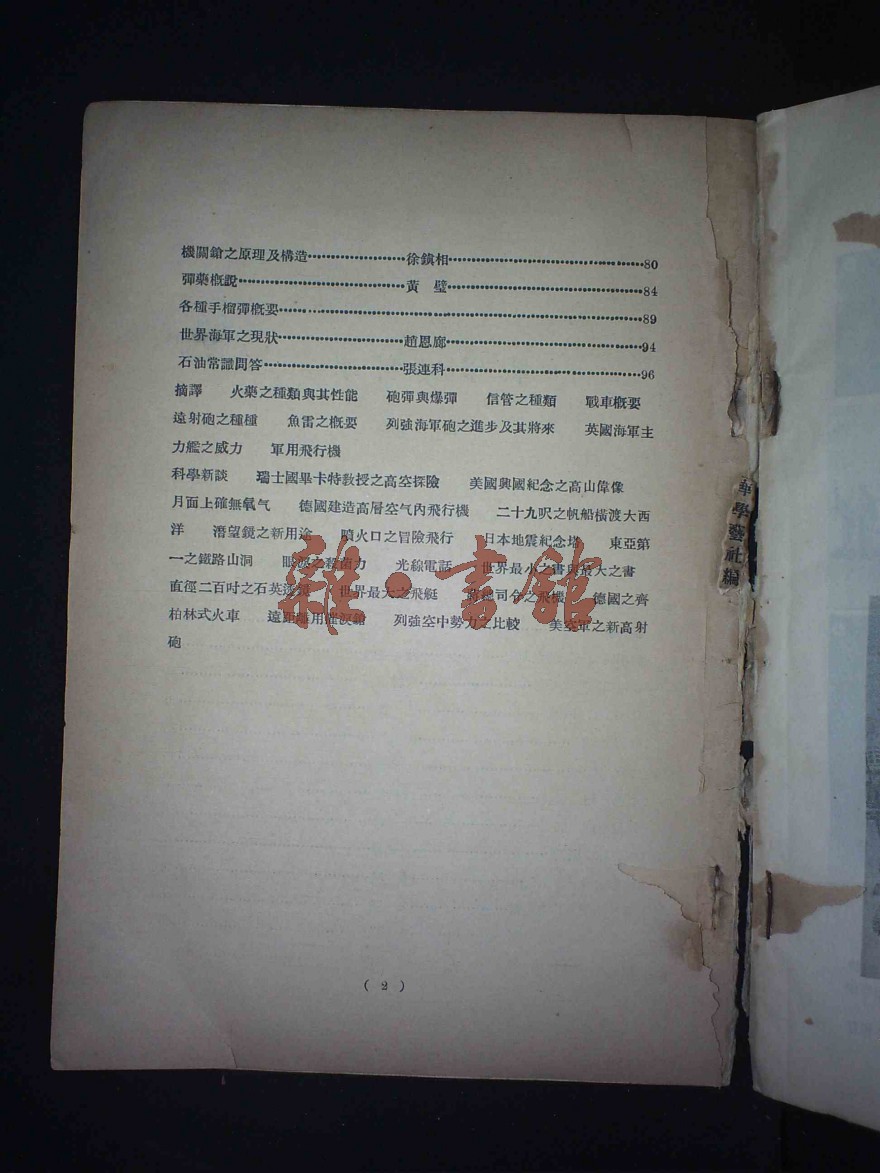 機關鎗之原理及構造⋯⋯⋯⋯⋯⋯徐鎮相⋯⋯⋯⋯⋯⋯⋯⋯⋯⋯80
彈藥概說⋯⋯⋯⋯⋯⋯⋯⋯⋯⋯黃 璧⋯⋯⋯⋯⋯⋯⋯⋯⋯⋯84
各種手榴彈概要⋯⋯⋯⋯⋯⋯⋯⋯⋯⋯⋯⋯⋯⋯⋯⋯⋯⋯⋯89
世界海軍之現狀⋯⋯⋯⋯⋯⋯⋯趙恩廊⋯⋯⋯⋯⋯⋯⋯⋯⋯⋯94
石油常識問答⋯⋯⋯⋯⋯⋯⋯⋯張連科⋯⋯⋯⋯⋯⋯⋯⋯⋯⋯96
摘譯 火藥之種類與其性能 砲彈與爆彈 信管之種類 戰車概要
遠射砲之種種 魚雷之概要 列強海軍砲之進步及其將來 英國海軍主
力艦之威力 軍用飛行機
科學新談 瑞士國畢卡特教授之高空探險 美國興國紀念之高山偉像
月面上確無氧气 德國建造高層空气內飛行機 二十九呎之帆船橫渡大西
洋 潛望鏡之新用途 噴火口之冒險飛行 日本地震紀念塔 東亞第
一之鐵路山洞 眼淚之殺菌力 光線電話 世界最小之書與最大之書
直徑二百吋之石英透鏡 世界最大之飛艇 之飛機 德國之齊
柏林式火車 遠距離用催淚鎗 列強空中勢力之比較 美空軍之新高射
砲
( 2 )
華學藝社編
雜·書館